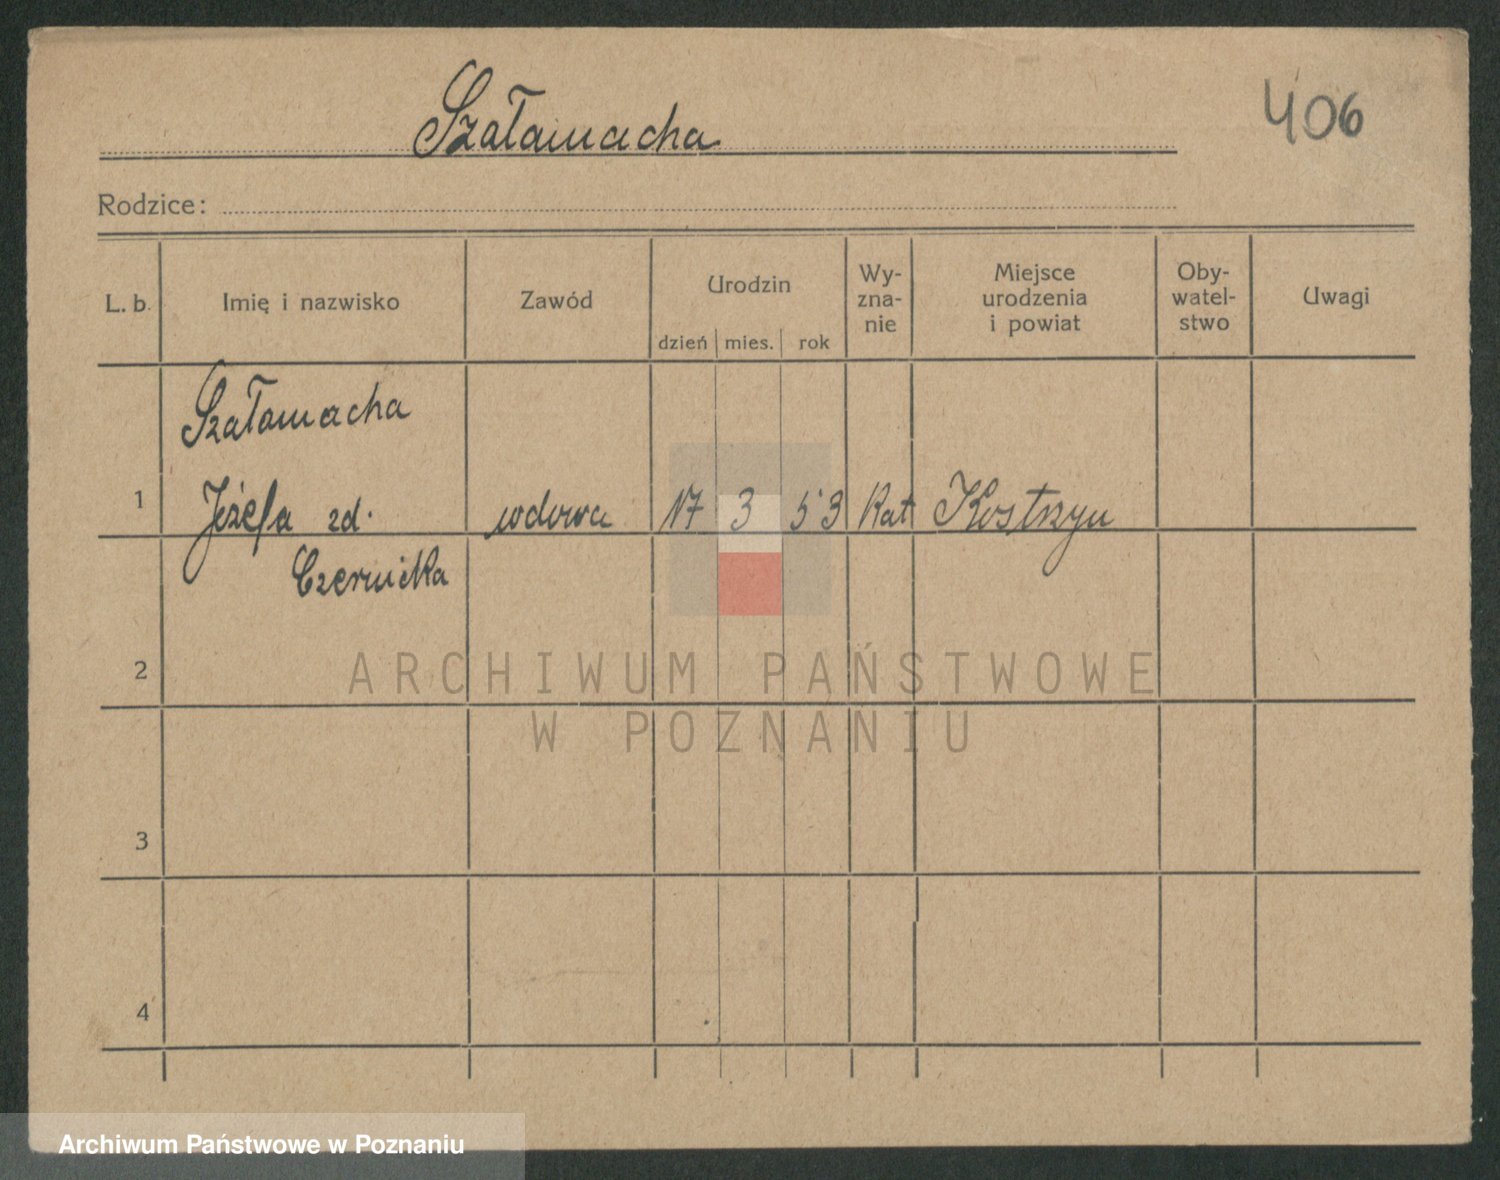 Szałamacha
406
Rodzice:
L. b. Imię i nazwisko Zawód Urodzin dzień mies. rok Wy-zna-nie Miejsce urodzenia i powiat Oby-watel-stwo Uwagi
Szałamacha
1 Józefa zd. wdowa 17 3 53 Kat Kostrzyn
Czernicka
2
ARCHIWUM PAŃSTWOWE
W POZNANIU
3
4
Archiwum Państwowe w Poznaniu